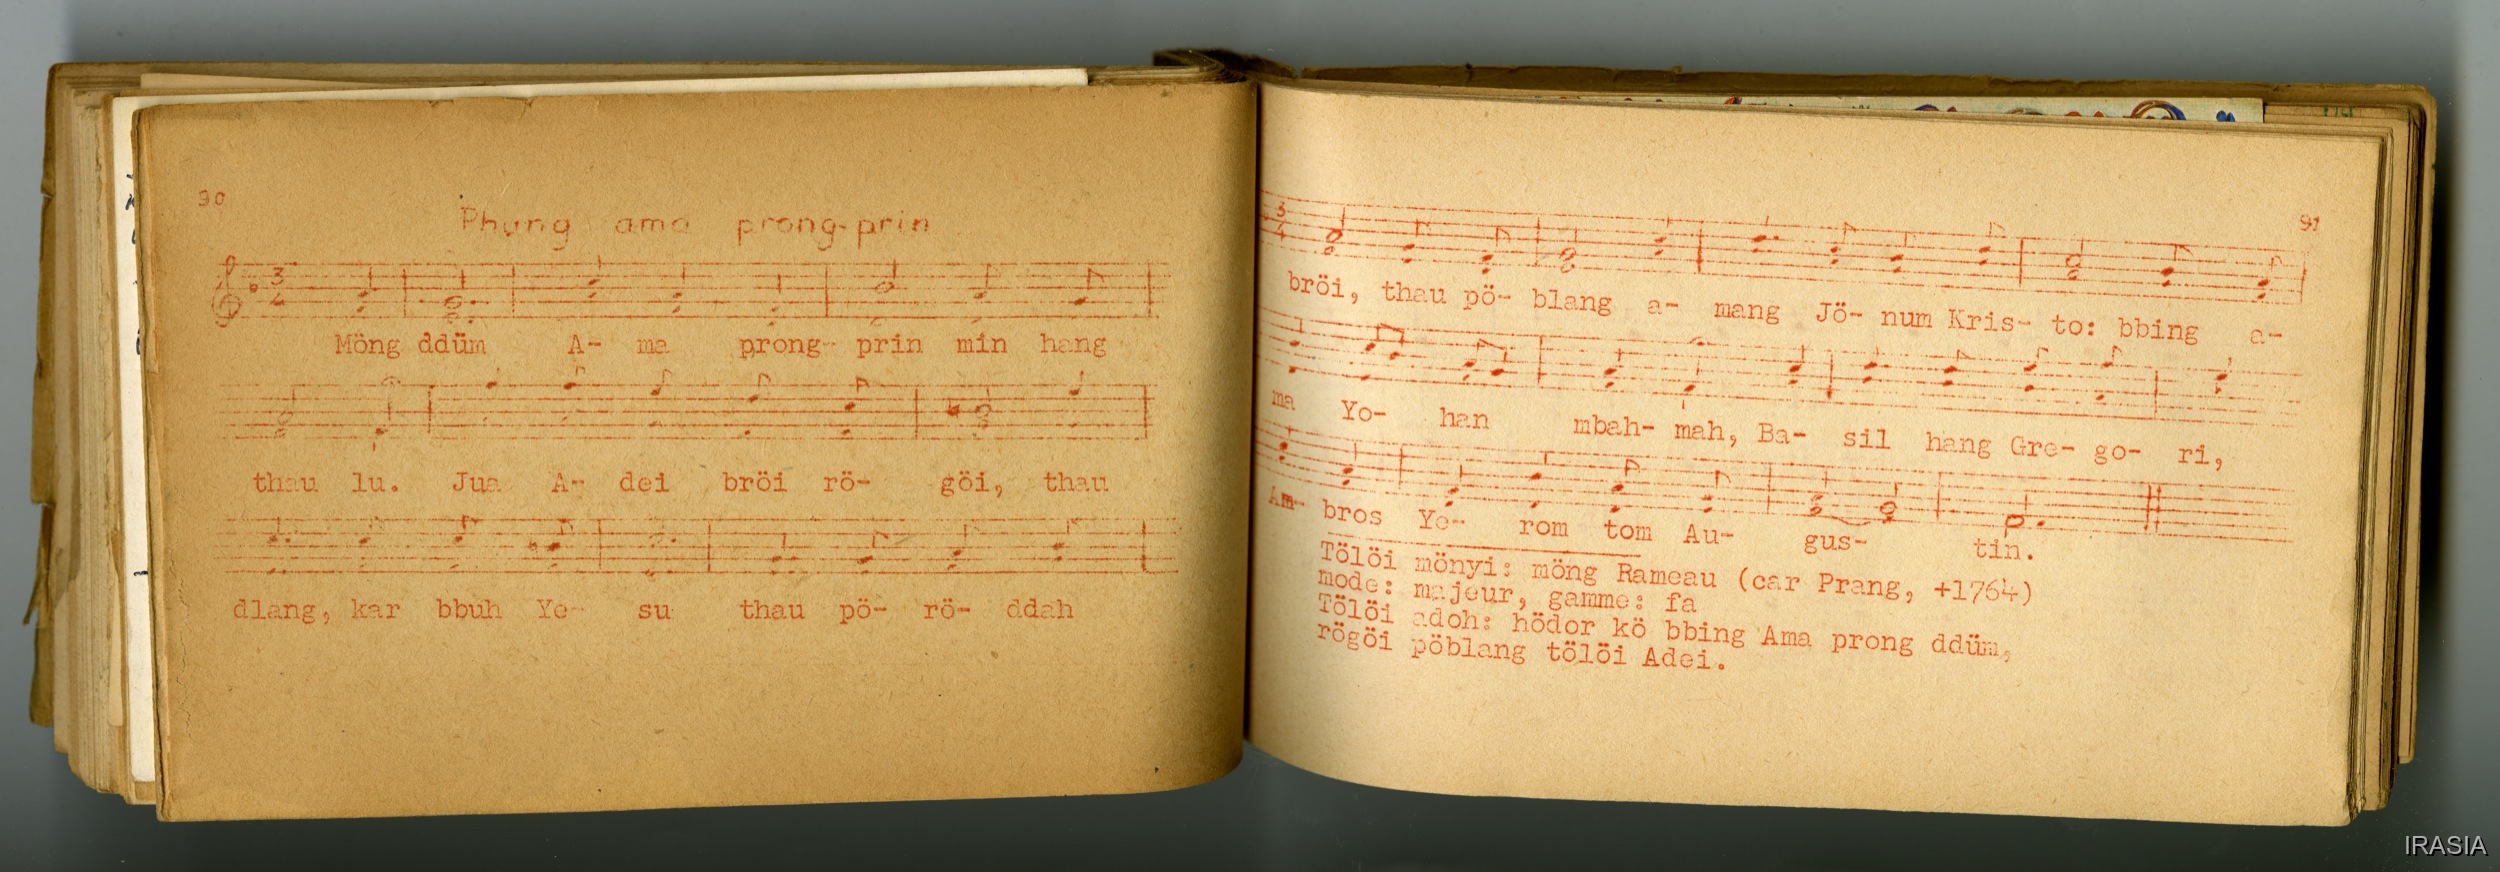 90
Phung ama prong-prin
3
4
Möng ddüm A- ma prong- prin min hang
thau lu. Jua A- dei bröi rö- göi, thau
dlang, kar bbuh Ye- su thau pö- rö- ddah
91
3
4
bröi, thau pö- blang a- mang Jö- num Kris- to: bbing a-
ma Yo- han mbah- mah, Ba- sil hang Gre- go- ri,
Am- bros Ye- rom tom Au- gus- tin.
Tölöi mönyi: möng Rameau (car Prang, +1764)
mode: majeur, gamme: fa
Tölöi adoh: hödor kö bbing Ama prong ddüm,
rögöi pöblang tölöi Adei.
IRASIA